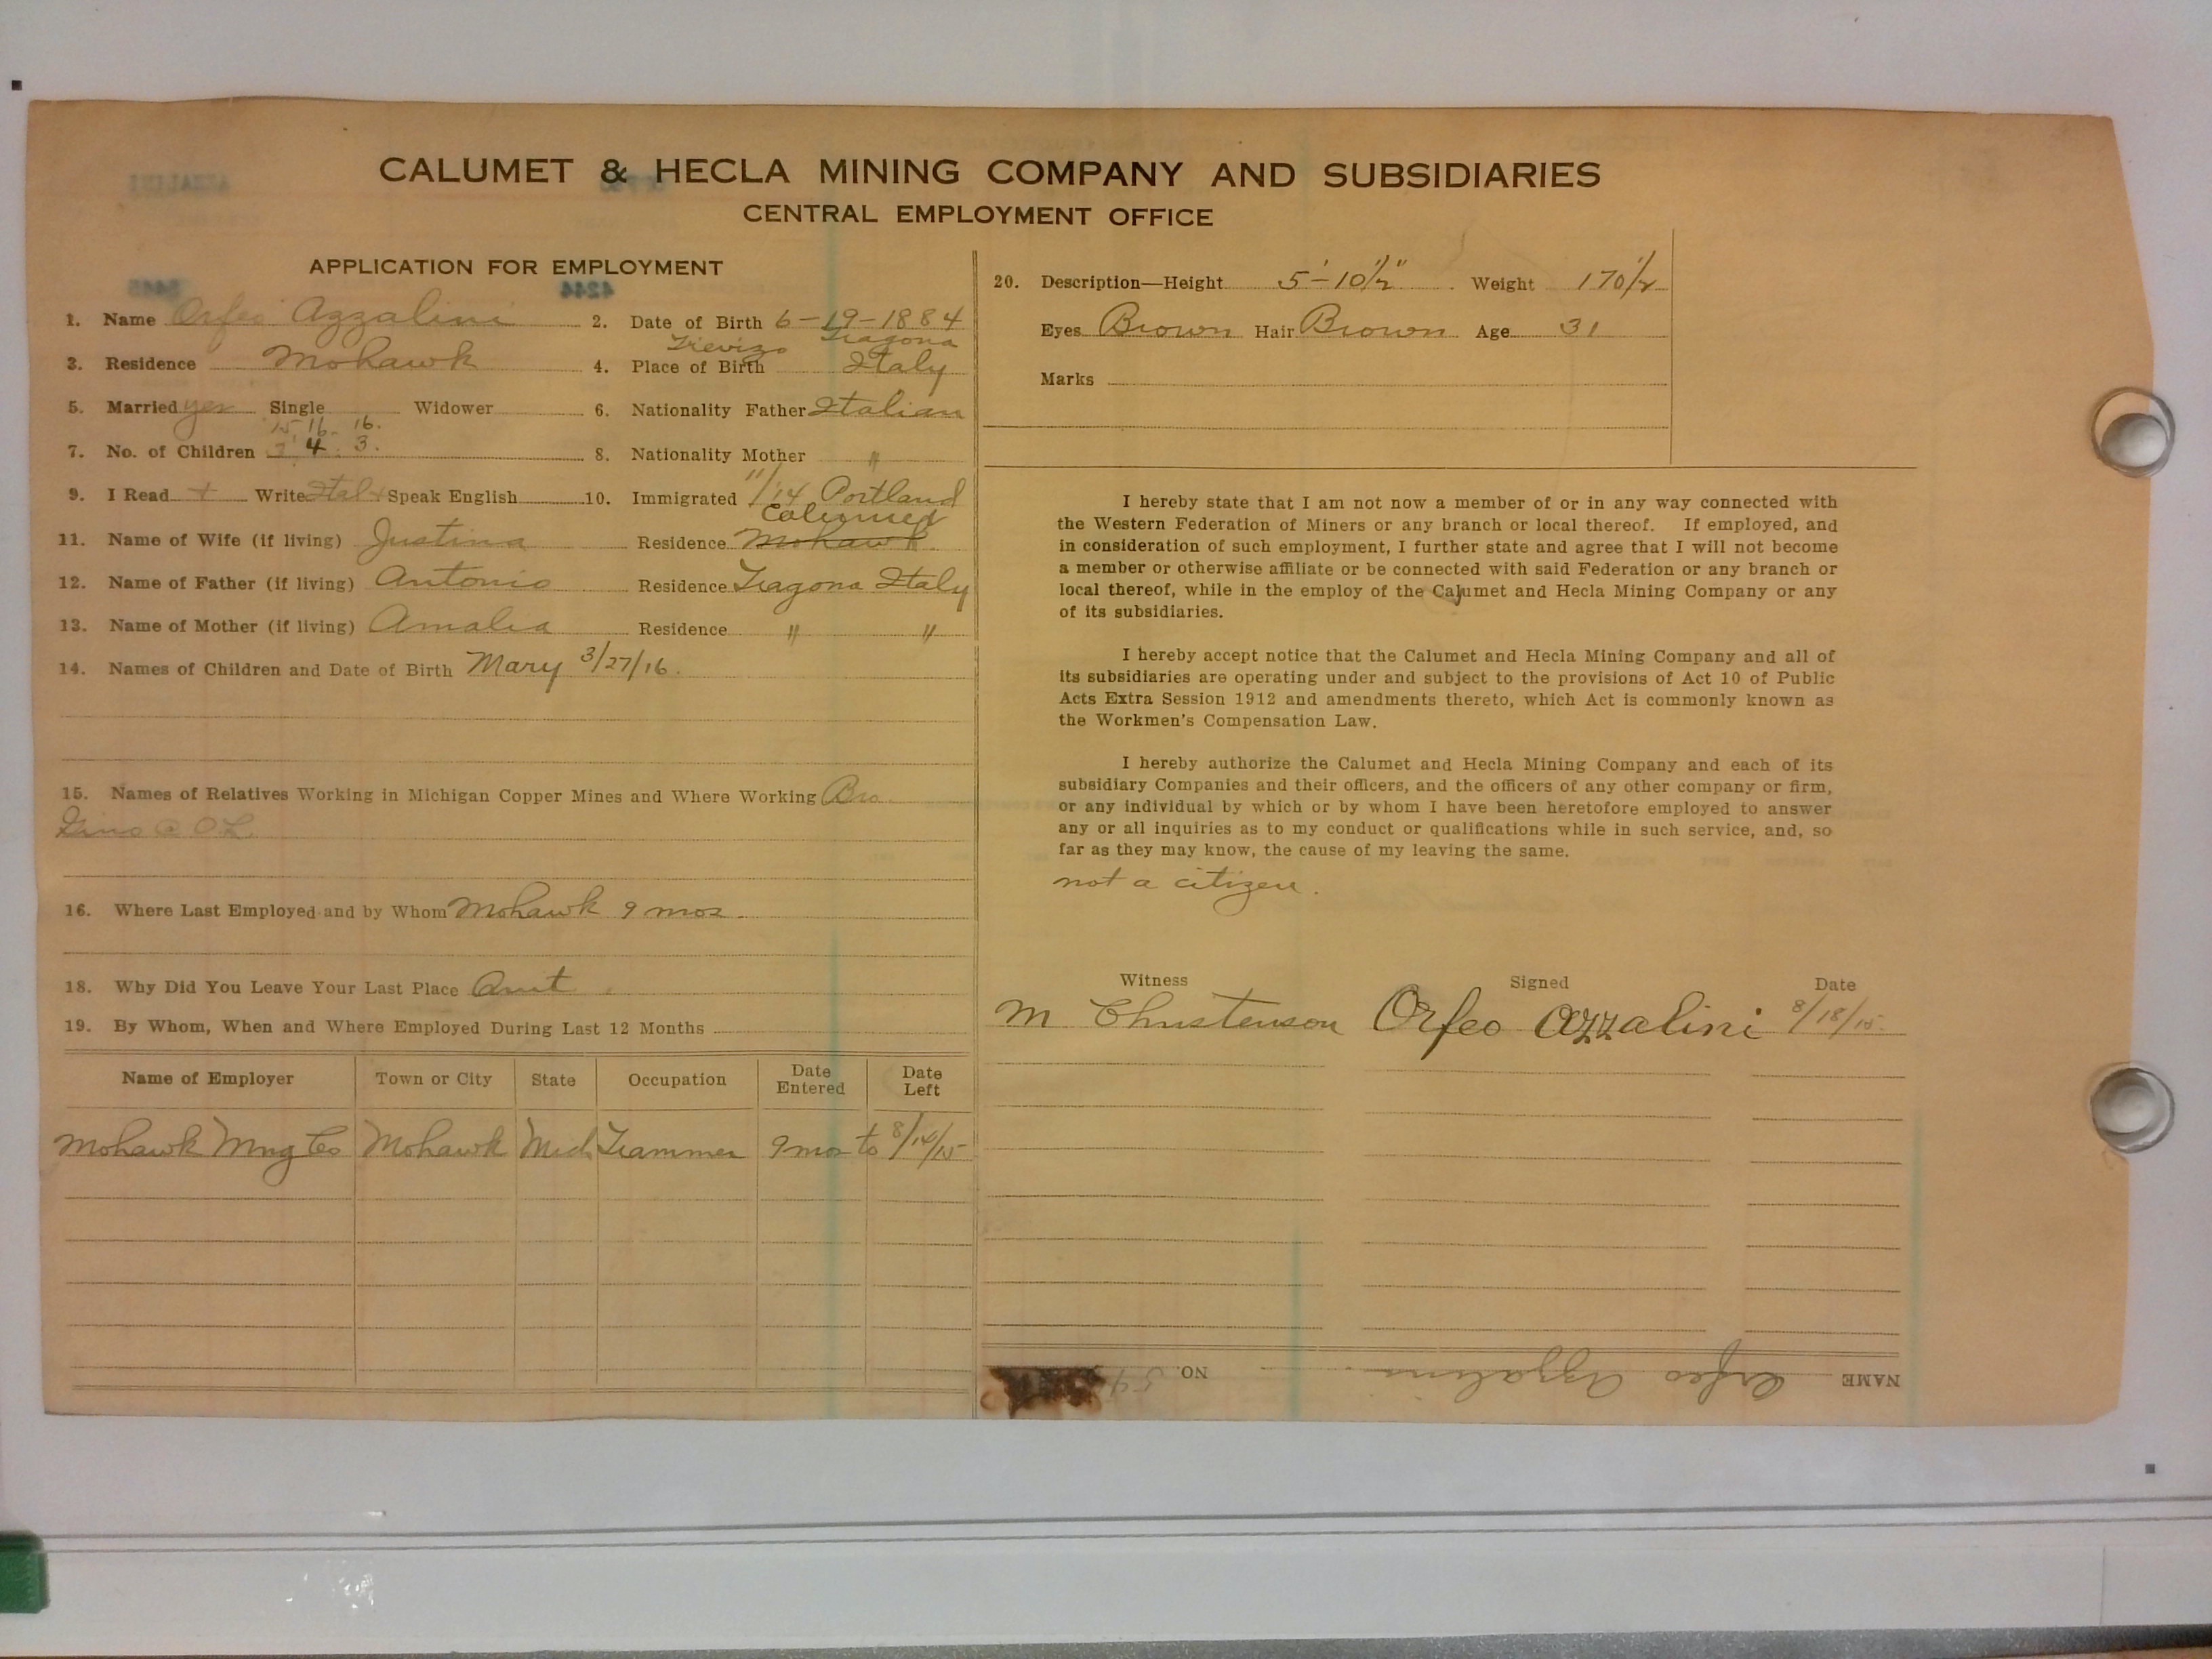 CALUMET & HECLA MINING COMPANY AND SUBSIDIARIES
CENTRAL EMPLOYMENT OFFICE
APPLICATION FOR EMPLOYMENT
1. Name Orfeo Azzalini 2. Date of Birth 6-19-1884
Trevizo Tragona
3. Residence Mohawk 4. Place of Birth Italy
5. Married yes Single Widower 6. Nationality Father Italian
15 16. 16.
7. No. of Children 3 4. 3. 8. Nationality Mother "
9. I Read + Write Ital + Speak English 10. Immigrated 11/14 Portland
Calumet
11. Name of Wife (if living) Justina Residence Mohawk.
12. Name of Father (if living) Antonio Residence Tragona Italy
13. Name of Mother (if living) Amalia Residence " "
14. Names of Children and Date of Birth Mary 3/27/16.
15. Names of Relatives Working in Michigan Copper Mines and Where Working Bro.
Gino @ OL
16. Where Last Employed and by Whom Mohawk 9 mos.
18. Why Did You Leave Your Last Place Quit.
19. By Whom, When and Where Employed During Last 12 Months
Name of Employer Town or City State Occupation Date Entered Date Left
Mohawk Mng Co Mohawk Mich Trammer 9 mos to 8/14/15
20. Description—Height 5'-10½" Weight 170½
Eyes Brown Hair Brown Age 31
Marks
I hereby state that I am not now a member of or in any way connected with
the Western Federation of Miners or any branch or local thereof. If employed, and
in consideration of such employment, I further state and agree that I will not become
a member or otherwise affiliate or be connected with said Federation or any branch or
local thereof, while in the employ of the Calumet and Hecla Mining Company or any
of its subsidiaries.
I hereby accept notice that the Calumet and Hecla Mining Company and all of
its subsidiaries are operating under and subject to the provisions of Act 10 of Public
Acts Extra Session 1912 and amendments thereto, which Act is commonly known as
the Workmen's Compensation Law.
I hereby authorize the Calumet and Hecla Mining Company and each of its
subsidiary Companies and their officers, and the officers of any other company or firm,
or any individual by which or by whom I have been heretofore employed to answer
any or all inquiries as to my conduct or qualifications while in such service, and, so
far as they may know, the cause of my leaving the same.
not a citizen.
Witness Signed Date
M Christenson Orfeo Azzalini 8/18/15
NAME Orfeo Azzalini NO.